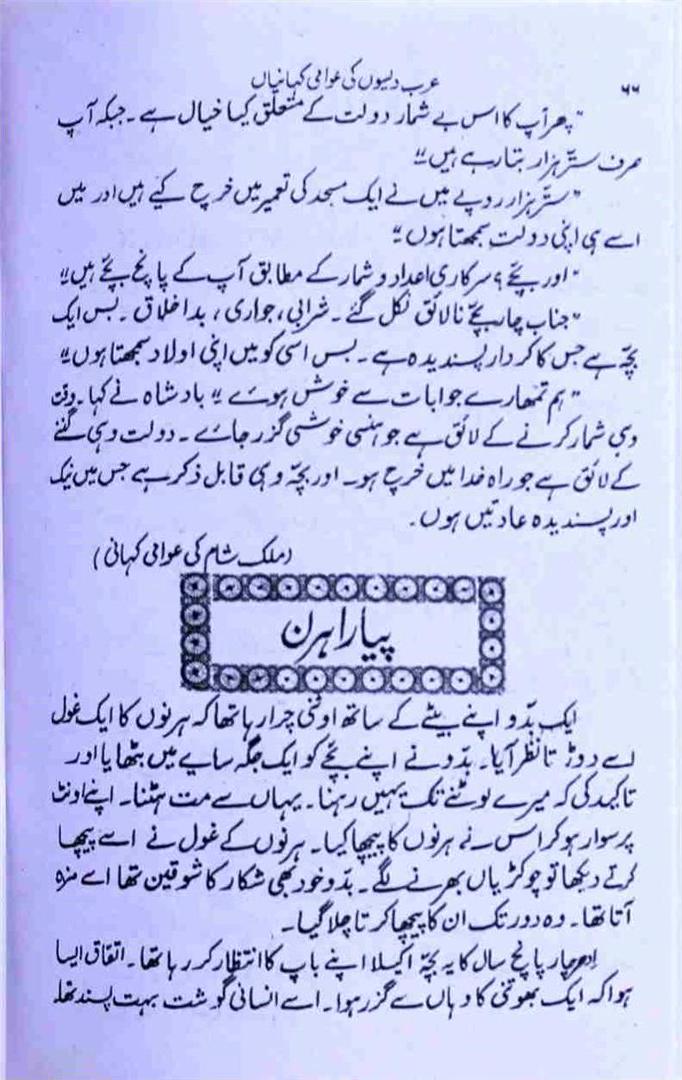 ۶۶
عرب دیسوں کی عوامی کہانیاں
"پھر آپ کا اس بے شمار دولت کے متعلق کیا خیال ہے۔ جبکہ آپ
صرف ستّر ہزار بتا رہے ہیں"
"ستّر ہزار روپے میں نے ایک مسجد کی تعمیر میں خرچ کیے ہیں اور میں
اسے ہی اپنی دولت سمجھتا ہوں"
"اور بچّے؟ سرکاری اعداد و شمار کے مطابق آپ کے پانچ بچّے ہیں"
"جناب چار بچّے نالائق نکل گئے۔ شرابی، جواری، بداخلاق۔ بس ایک
بچّہ ہے جس کا کردار پسندیدہ ہے۔ بس اسی کو میں اپنی اولاد سمجھتا ہوں"
"ہم تمھارے جوابات سے خوش ہوئے" بادشاہ نے کہا۔ وقت
وہی شمار کرنے کے لائق ہے جو ہنسی خوشی گزر جائے۔ دولت وہی گننے
کے لائق ہے جو راہِ خدا میں خرچ ہو۔ اور بچّہ وہی قابل ذکر ہے جس میں نیک
اور پسندیدہ عادتیں ہوں۔
(ملک شام کی عوامی کہانی)
پیارا ہرن
ایک بدّو اپنے بیٹے کے ساتھ اونٹنی چرا رہا تھا کہ ہرنوں کا ایک غول
اسے دوڑتا نظر آیا۔ بدّو نے اپنے بچّے کو ایک جگہ سایے میں بٹھایا اور
تاکید کی کہ میرے لوٹنے تک یہیں رہنا۔ یہاں سے مت ہٹنا۔ اپنے اونٹ
پر سوار ہو کر اس نے ہرنوں کا پیچھا کیا۔ ہرنوں کے غول نے اسے پیچھا
کرتے دیکھا تو چوکڑیاں بھرنے لگے۔ بدّو خود بھی شکار کا شوقین تھا اسے مزہ
آتا تھا۔ وہ دور تک ان کا پیچھا کرتا چلا گیا۔
اِدھر چار پانچ سال کا یہ بچّہ اکیلا اپنے باپ کا انتظار کر رہا تھا۔ اتفاق ایسا
ہوا کہ ایک بھوتنی کا وہاں سے گزر ہوا۔ اسے انسانی گوشت بہت پسند تھا۔